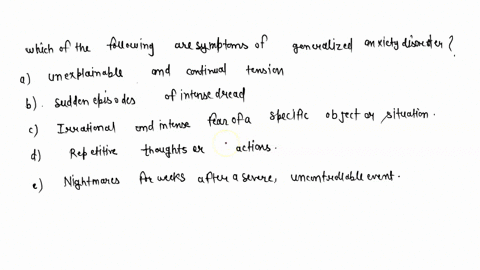 which of the following are symptoms of generalized anxiety disorder ?
a) unexplainable and continual tension
b). sudden episodes of intense dread
c) Irrational and intense fear of a specific object or situation.
d) Repetitive thoughts or actions.
e) Nightmares for weeks after a severe, uncontrollable event.